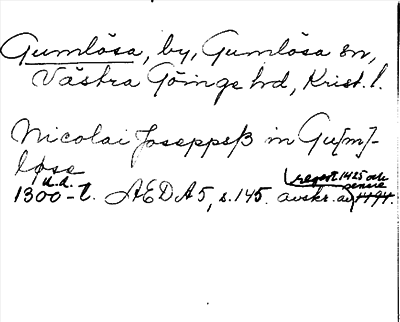 Gumlösa, by, Gumlösa sn,
Västra Göinge hd, Krist. l.
Nicolai Joseppsß in Gu[m]-
løse
u.d.
1300-t. AEDA5, s. 145. avskr. av 1494.
regest 1425 och
senare